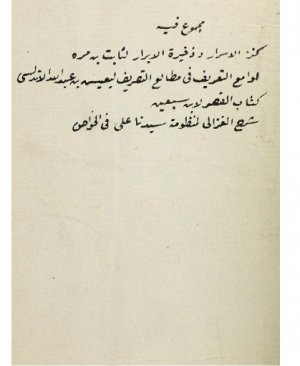 مجموع فيه
كنز الاسرار وذخيرة الابرار لثابت بن مره
لوامع التعريف في مطالع التصريف ليعيش بن عبد الله الاندلسى
كتاب القصد لابن سبعين
شرح الغزالى لمنظومة سيدنا على في الخواص